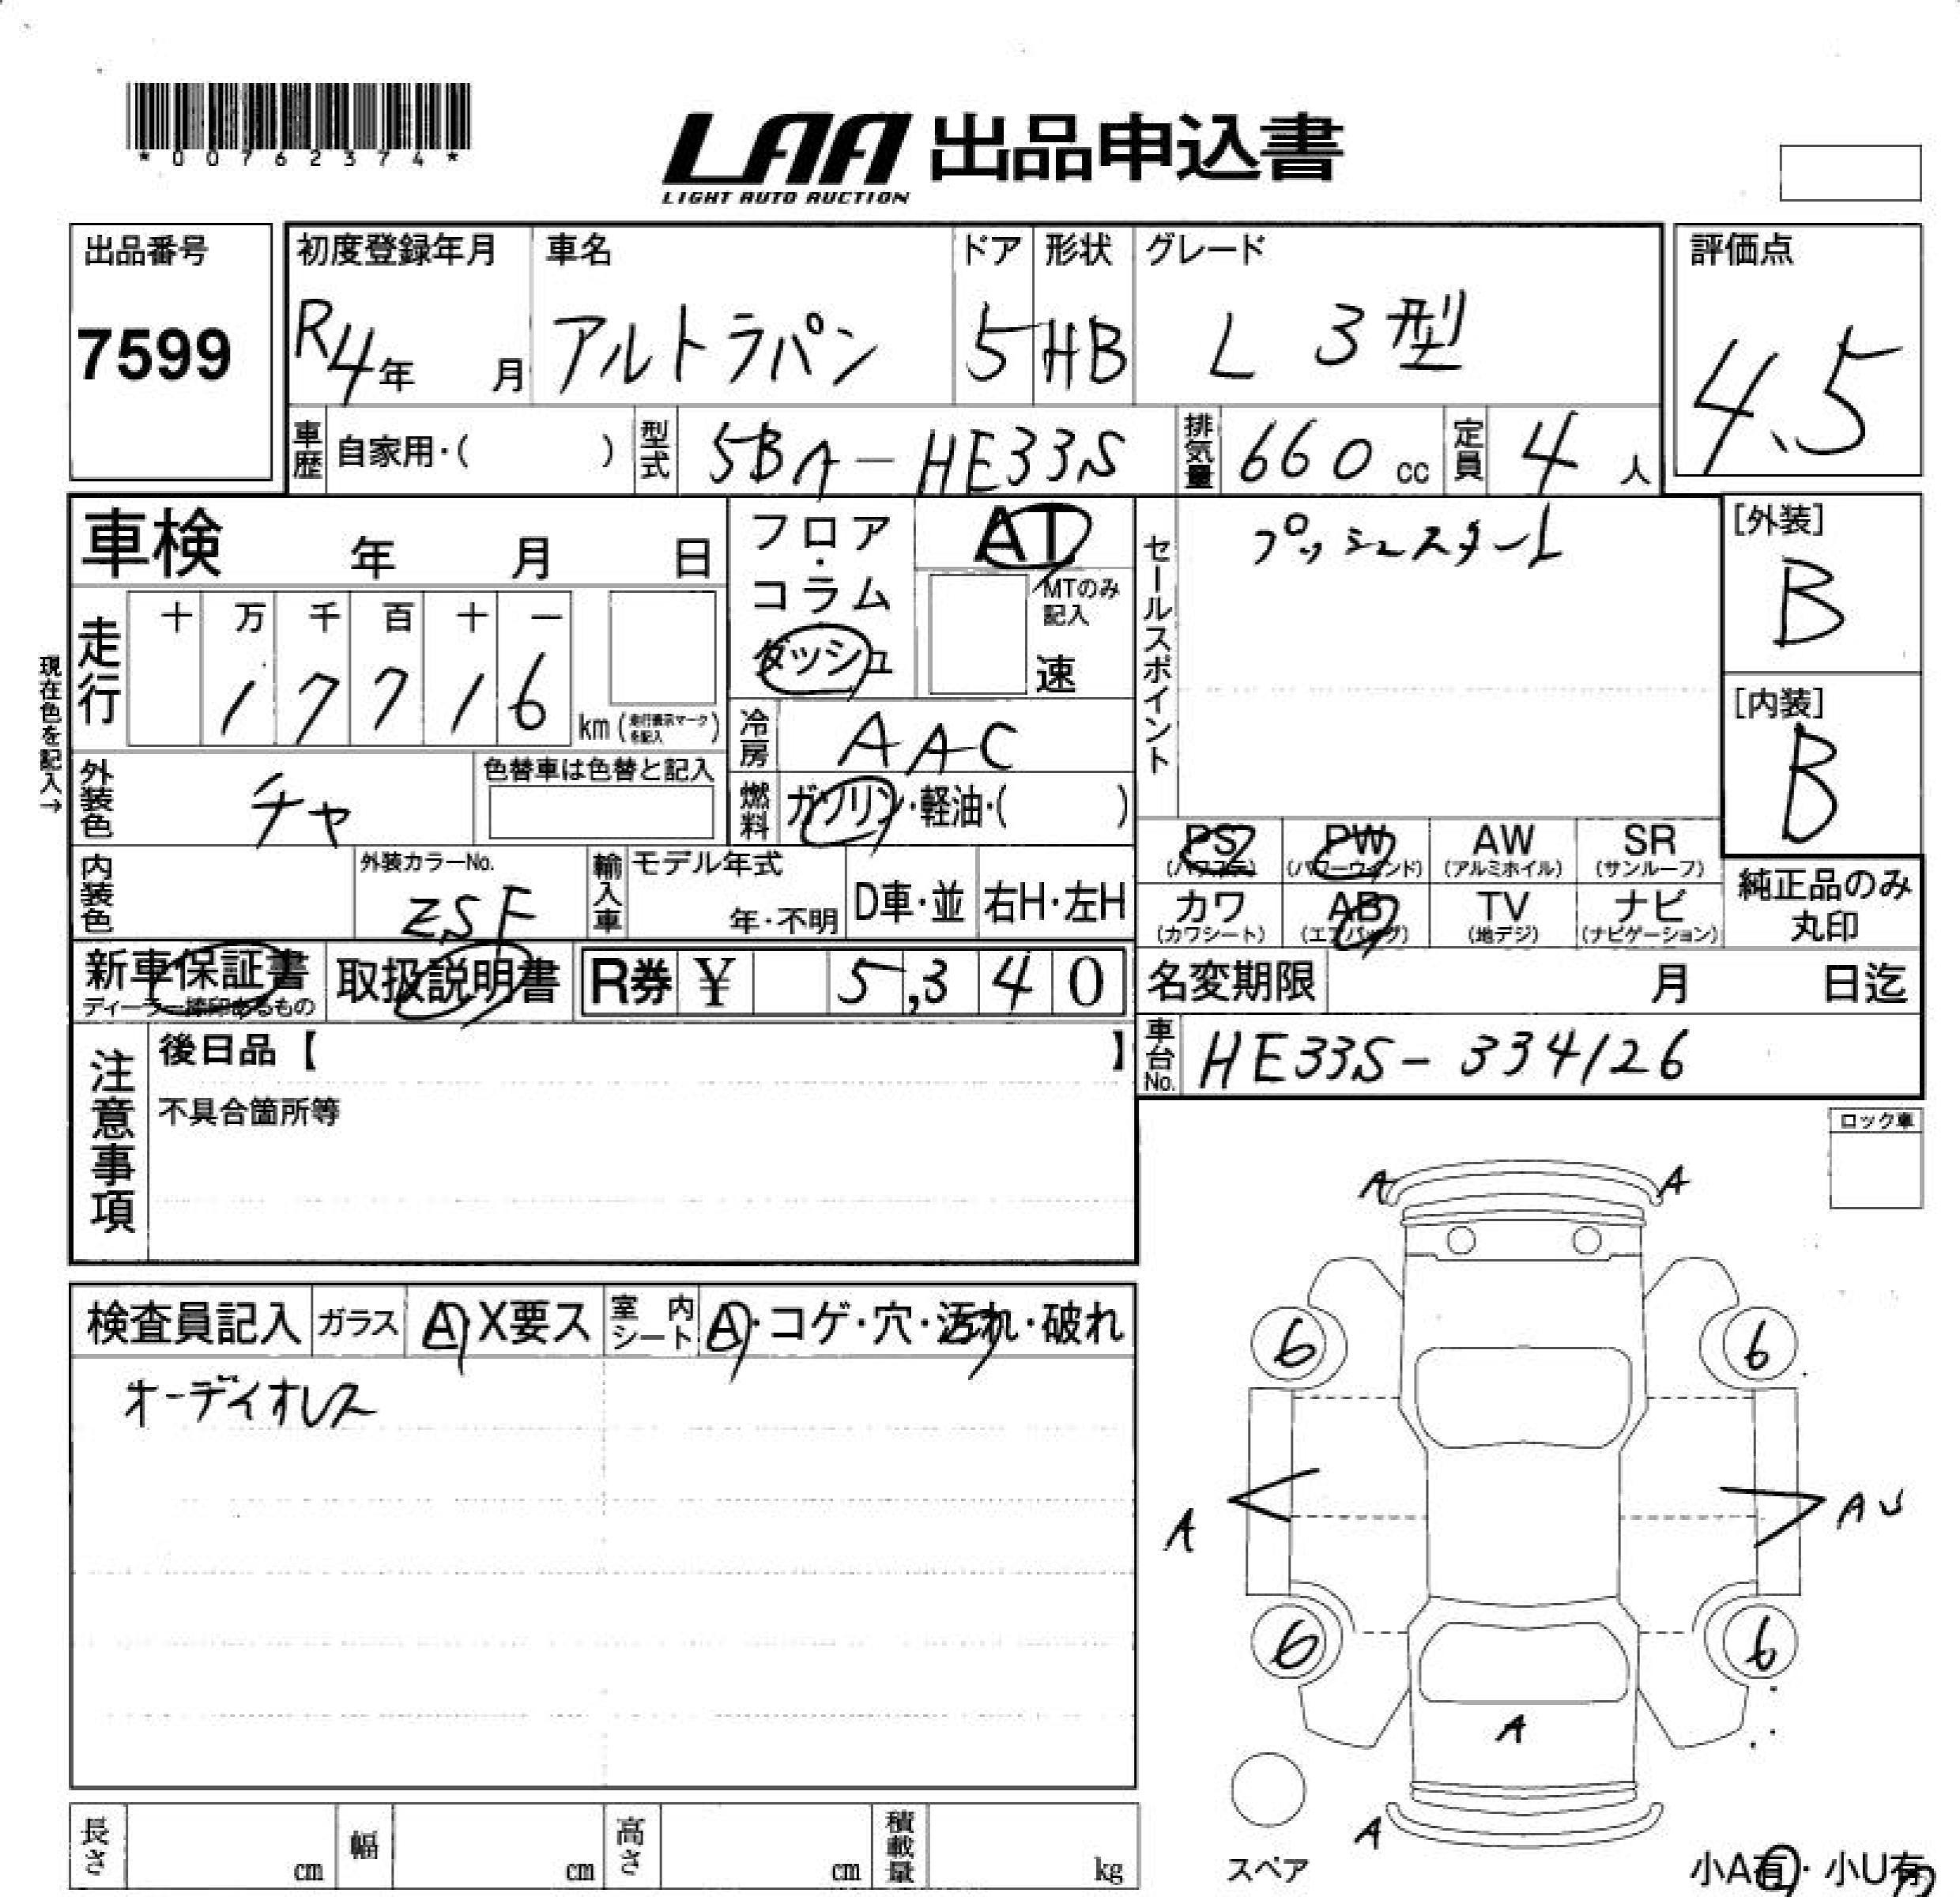 *00762374*
LAA 出品申込書
LIGHT AUTO AUCTION
出品番号
7599
初度登録年月
R4年 月
車名
アルトラパン
ドア
5
形状
HB
グレード
L 3型
評価点
4.5
車歴
自家用・( )
型式
5BA-HE33S
排気量
660 cc
定員
4 人
車検 年 月 日
フロア・コラム
ダッシュ
AT
MTのみ記入
速
セールスポイント
プッシュスタート
[外装]
B
[内装]
B
現在色を記入→
走行
十 万 千 百 十 一
1 7 7 1 6
km (走行表示マークを記入)
冷房
AAC
燃料
ガソリン・軽油・( )
外装色
チャ
色替車は色替と記入
内装色
外装カラーNo.
ZSF
輸入車
モデル年式
年・不明
D車・並
右H・左H
PS
(パワステ)
PW
(パワーウインド)
AW
(アルミホイル)
SR
(サンルーフ)
カワ
(カワシート)
AB
(エアバッグ)
TV
(地デジ)
ナビ
(ナビゲーション)
純正品のみ
丸印
新車保証書
ディーラー捺印あるもの
取扱説明書
R券 ¥ 5,340
名変期限 月 日迄
車台No.
HE33S-334126
注意事項
後日品【 】
不具合箇所等
ロック車
検査員記入
ガラス
A・X要ス
室内シート
A・コゲ・穴・汚れ・破れ
オーディオレス
A A
6 6
A
AU
6 6
A
A
スペア
小A有・小U有
長さ cm
幅 cm
高さ cm
積載量 kg